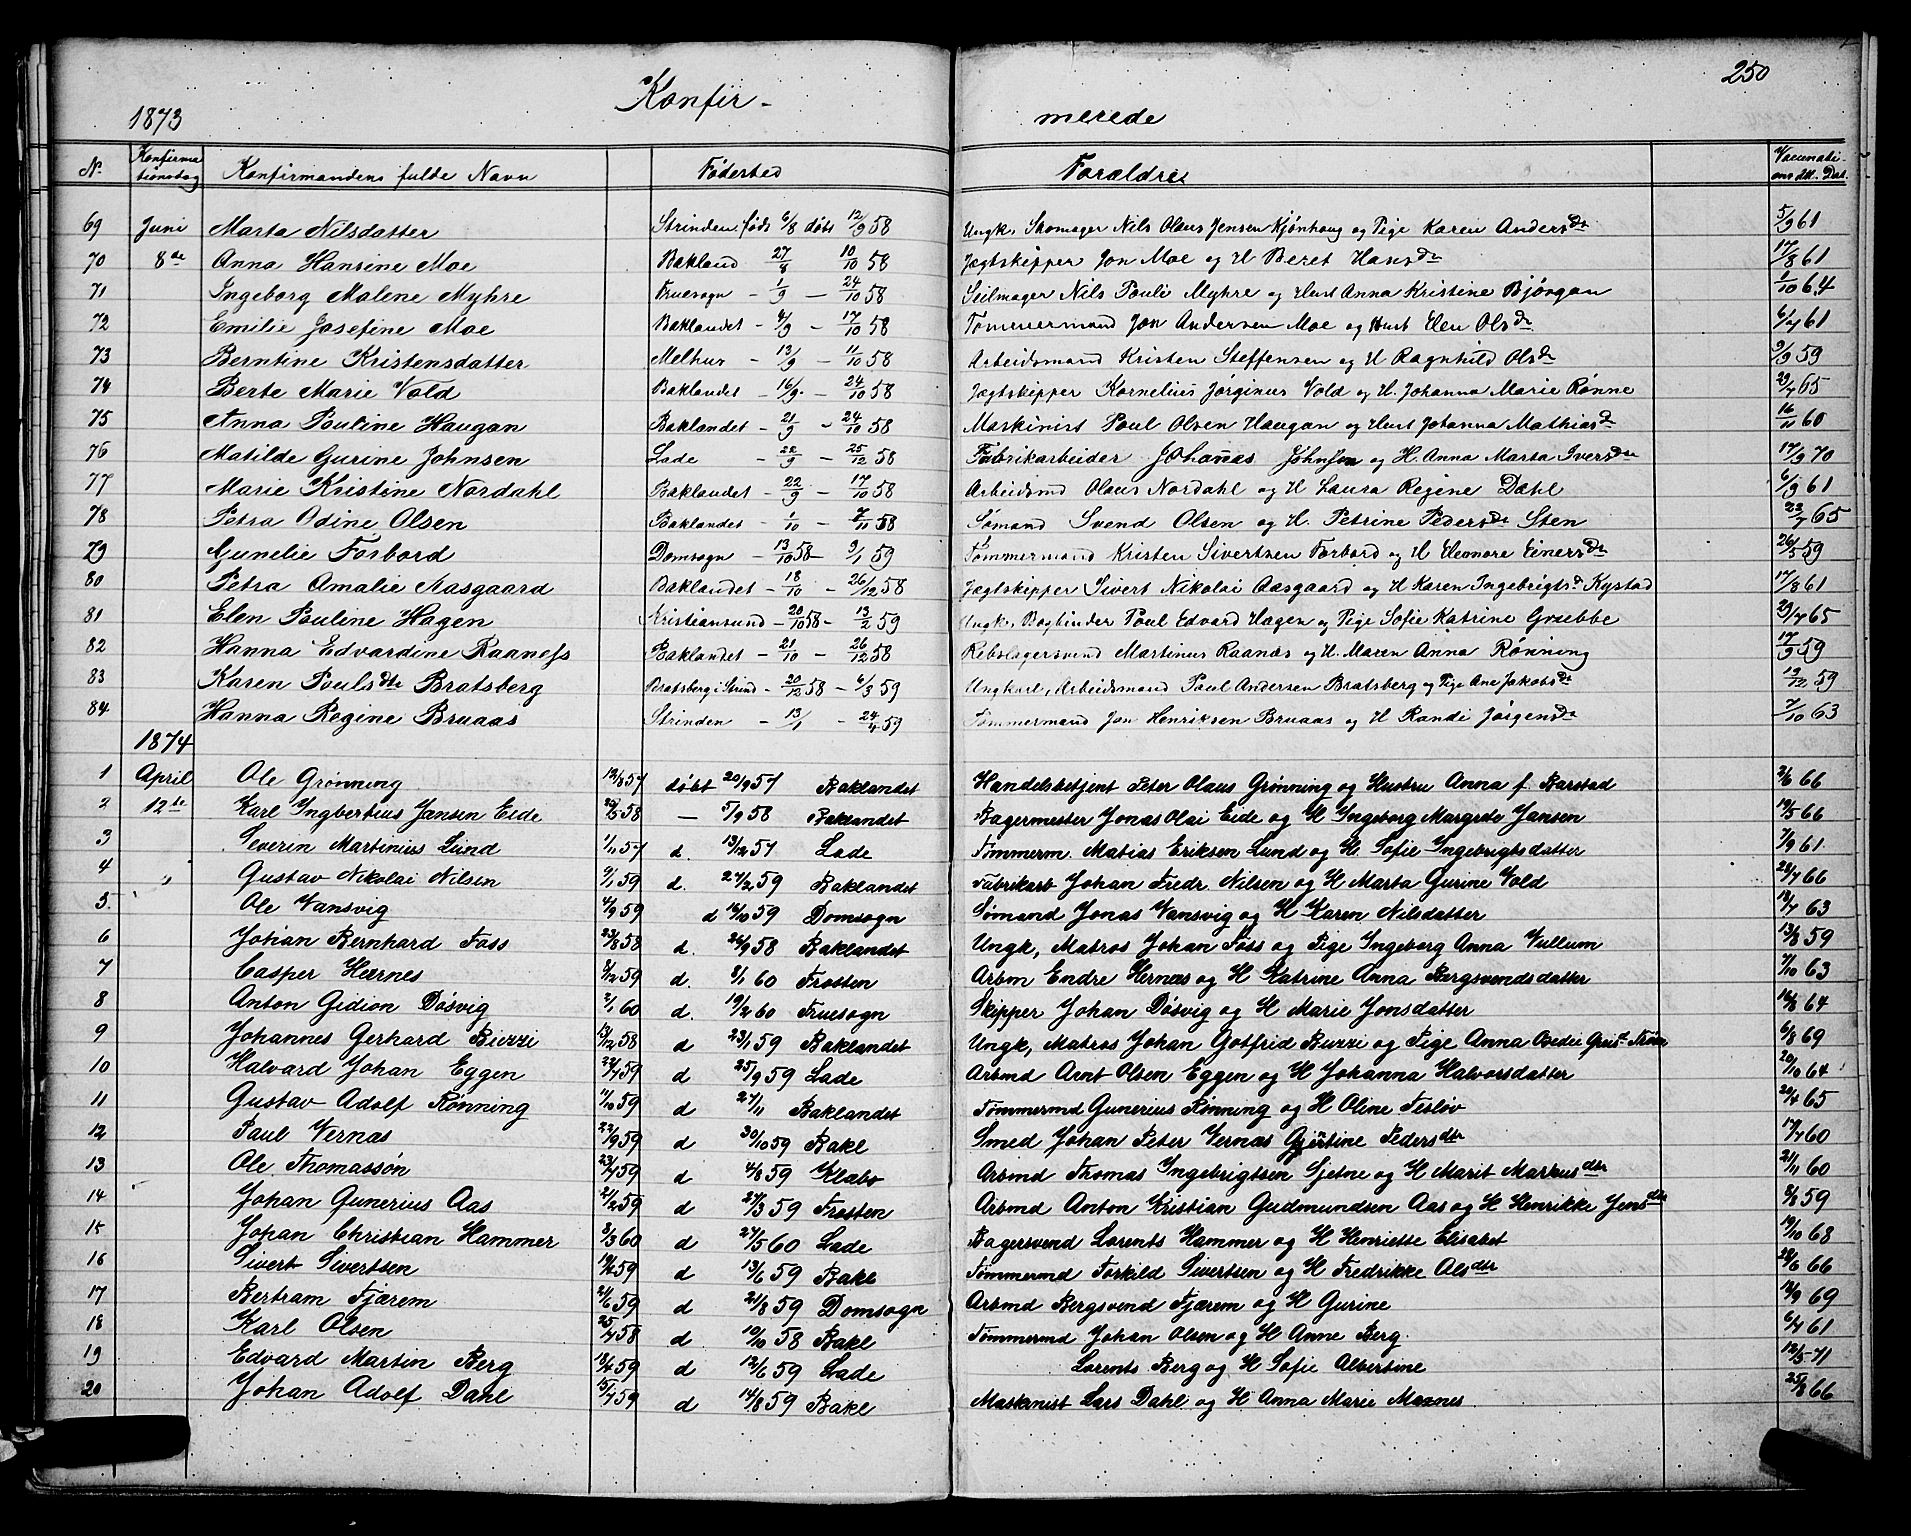 250
Konfir-
merede
1873
No Konfirmationsdag Konfirmandens fulde Navn Fødested Forældre Vaccinations Att. Dat.
69 Juni Marta Nilsdatter Strinden, født 6/8 døbt 12/9 58 Ungk, Skomager Nils Olaus Jensen Kjønhaug og Pige Karen Andersdtr 5/9 61
70 8de Anna Hansine Moe Bakland 27/8 10/10 58 Jægtskipper Jon Moe og H Beret Hansdtr 17/8 61
71 Ingeborg Malene Myhre Fruesogn - 1/9 - 24/10 58 Seilmager Nils Pouli Myhre og Hust Anna Kristine Bjørgan 1/10 64
72 Emilie Josefine Moe Baklandet - 4/9 - 17/10 58 Tømmermand Jon Andersen Moe og Hust Elen Olsdtr 6/7 61
73 Berntine Kristensdatter Melhus - 13/9 - 11/10 58 Arbeidsmand Kristen Steffensen og H Ragnhild Olsdtr 9/9 59
74 Berte Marie Vold Baklandet - 16/9 - 24/10 58 Jægtskipper Kornelius Jørginus Vold og H. Johanna Marie Rønne 29/7 65
75 Anna Pouline Haugan Baklandet - 21/9 - 24/10 58 Maskinist Poul Olsen Haugan og Hust Johanna Mathiasd 16/11 60
76 Matilde Gurine Johnsen Lade - 22/9 - 25/12 58 Fabrikarbeider Johanas Johnsen og H. Anna Marta Iversdtr 17/9 70
77 Marie Kristine Nordahl Baklandet - 22/9 - 17/10 58 Arbeidsmd Olaus Nordahl og H Laura Regine Dahl 6/9 61
78 Petra Odine Olsen Baklandet - 1/10 - 7/11 58 Sømand Svend Olsen og H. Petrine Pedersdtr Sten 22/7 65
79 Gunelie Forbord Domsogn - 13/10 58 - 9/1 59 Tømmermand Kristen Sivertsen Forbord og H Eleonore Einersdtr 26/5 59
80 Petra Amalie Aasgaard Baklandet - 18/10 - 26/12 58 Jægtskipper Sivert Nikolai Aasgaard og H Karen Ingebrigtsd Kystad 17/8 61
81 Elen Pauline Hagen Kristiansund - 20/10 58 - 13/2 59 Ungk, Bogbinder Poul Edvard Hagen og Pige Sofie Katrine Grubbe 29/7 65
82 Hanna Edvardine Raaness Baklandet - 21/10 - 26/12 58 Rebslagersvend Martinus Raanæs og H. Maren Anna Rønning 17/9 59
83 Karen Poulsdtr Bratsberg Bratsberg i Strind - 20/12 58 - 6/3 59 Ungkarl, Arbeidsmand Paul Andersen Bratsberg og Pige Ane Jakobsdtr 12/12 59
84 Hanna Regine Bruaas Strinden - 13/1 - 24/4 59 Tømmermand Jon Henriksen Bruaas og H Randi Jørgensdtr 7/10 63
1874
1 April Ole Grønning 12/8 57 døbt 20/9 57 Baklandet Handelsbetjent Peter Olaus Grønning og Hustru Anna f. Barstad 2/6 66
2 12te Karl Ingbertius Jansen Eide 58 - 5/9 58 Baklandet Bagermester Jonas Olai Eide og H Ingeborg Margrete Jansen 19/5 66
3 Severin Martinius Lund 1/11 57 d. 13/12 57 Lade Tømmerm. Matias Eriksen Lund og H. Sofie Ingebrigtsdatter 7/9 61
4 Gustav Nikolai Nilsen 9/1 59 d. 27/2 59 Baklandet Fabrikarb Johan Fredr. Nilsen og H Marta Gurine Vold 28/7 66
5. Ole Vansvig 4/9 59 d 16/10 59 Domsogn Sømand Jonas Vansvig og H Karen Nilsdatter 19/7 63
6 Johan Bernhard Foss 23/8 58 d. 26/9 58 Baklandet Ungk, Matros Johan Foss og Pige Ingeborg Anna Vullum 13/8 59
7 Casper Hernes 8/12 59 d. 8/1 60 Frosten Arbm Endre Hernæs og H Katrine Anna Bergsvendsdatter 7/10 63
8 Anton Gidion Døsvig 2/1 60 d. 19/2 60 Fruesogn Skipper Johan Døsvig og H Marie Jonsdatter 16/8 64
9 Johannes Gerhard Buzzi 13/12 58 d 23/1 59 Baklandet Ungk, Matros Johan Gotfrid Buzzi og Pige Anna 6/8 69
10 Halvard Johan Eggen 27/7 59 d 25/9 59 Lade Arbmd Arnt Olsen Eggen og H Johanna Halvorsdatter 20/10 64
11 Gustav Adolf Rønning 11/10 59 d 27/11 Baklandet Tømmermd Gunerius Rønning og H Oline Fesløv 24/4 65
12 Paul Vernæs 22/9 59 d 30/10 59 Bakl Smed Johan Peter Vernæs Gjertine Pedersdtr 17/7 60
13 Ole Thomassøn 23/4 59 d 59 Klæbo Arbmd Thomas Ingebrigtsen Sjetne og H Marit Markusdtr 21/11 60
14 Johan Gunerius Aas 21/2 59 d 27/3 59 Frosten Arbmd Anton Kristian Gudmundsen Aas og H Henrikke Jensdtr 8/8 59
15 Johan Christian Hammer 8/3 60 d 27/5 60 Lade Bagersvend Lorents Hammer og H Henriette Elisabet 19/10 68
16 Sivert Sivertsen 59 d 13/6 59 Bakl Tømmermd Torkild Sivertsen og H Fredrikke Olsdtr 28/6 66
17 Bertram Fjærem 24/6 59 d 21/8 59 Domsogn Arbmd Bergsvend Fjærem og H Gurine 12/9 69
18 Karl Olsen 25/7 58 d 10/10 58 Bakl Tømmermd Johan Olsen og H Anne Berg. 6/7 61
19 Edvard Martin Berg 18/4 59 d 12/6 59 Lade Lorents Berg og H Sofie Albertine 12/5 71
20 Johan Adolf Dahl 15/7 59 d 14/8 59 Bakl Maskinist Lars Dahl og H Anna Marie Moxnes 25/8 66